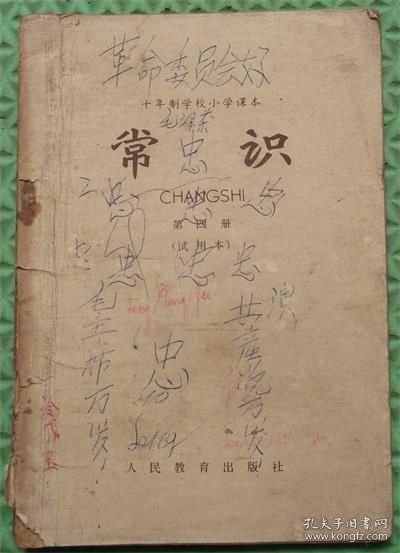 革命委员会好
十年制学校小学课本
毛泽东
常识
忠
CHANGSHI
三忠忠忠
第四册
(试用本)
忠忠忠
毛主席万岁
忠
共产党万岁
人民教育出版社
孔夫子旧书网
www.kongfz.com